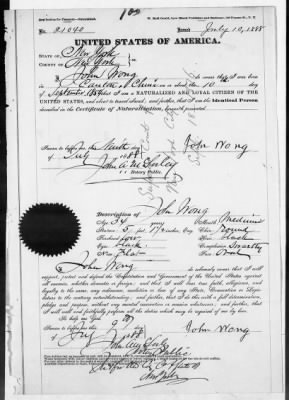 No. 21040
Issued July 10, 1888
UNITED STATES OF AMERICA.
STATE OF New York
COUNTY OF New York
I John Wong do swear that I was born
in Canton, China on or about the 10 day
of September
that I am a NATURALIZED AND LOYAL CITIZEN OF THE
UNITED STATES, and about to travel abroad; and further, that I am the Identical Person
described in the Certificate of Naturalization
Sworn to before me this Ninth day
of July 1888 John Wong
Notary Public.
Description of John Wong
Age, 34 years
Stature, 5 feet
Forehead, low
Eyes, black
Nose, flat
Mouth, Medium
Chin, Round
Hair, black
Complexion, Swarthy
Face, Oval
I, John Wong do solemnly swear that I will
support, protect and defend the Constitution and Government of the United States against
all enemies, whether domestic or foreign; and that I will bear true faith, allegiance and
loyalty to the same, any ordinance, resolution or law of any State, Convention or Legislature
to the contrary notwithstanding; and further, that I do this with a full determination,
pledge and purpose without any mental reservation or evasion whatsoever; and further, that
I will well and faithfully perform all the duties which may be required of me by law.
So help me God
Sworn to before me this 9th
day of July 1888 John Wong
Notary Public